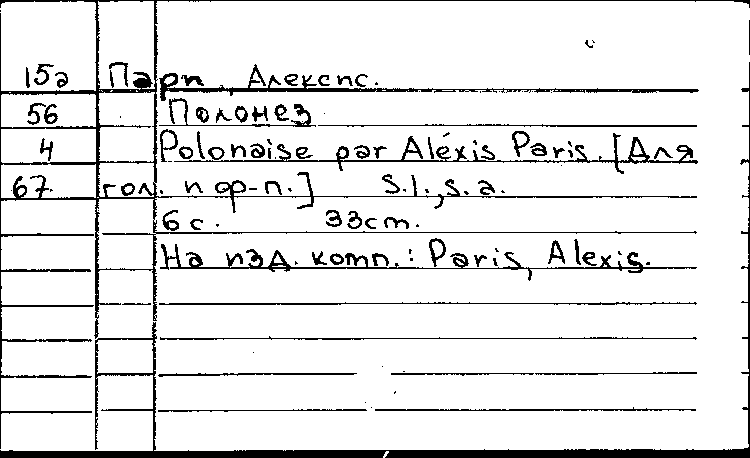 15а Пари, Алексис.
56 Полонез
4 Polonaise par Aléxis Paris. [Для
67 гол. и ф-п.] S.l., s.a.
6 с. 33 cm.
На изд. комп.: Paris, Alexis.